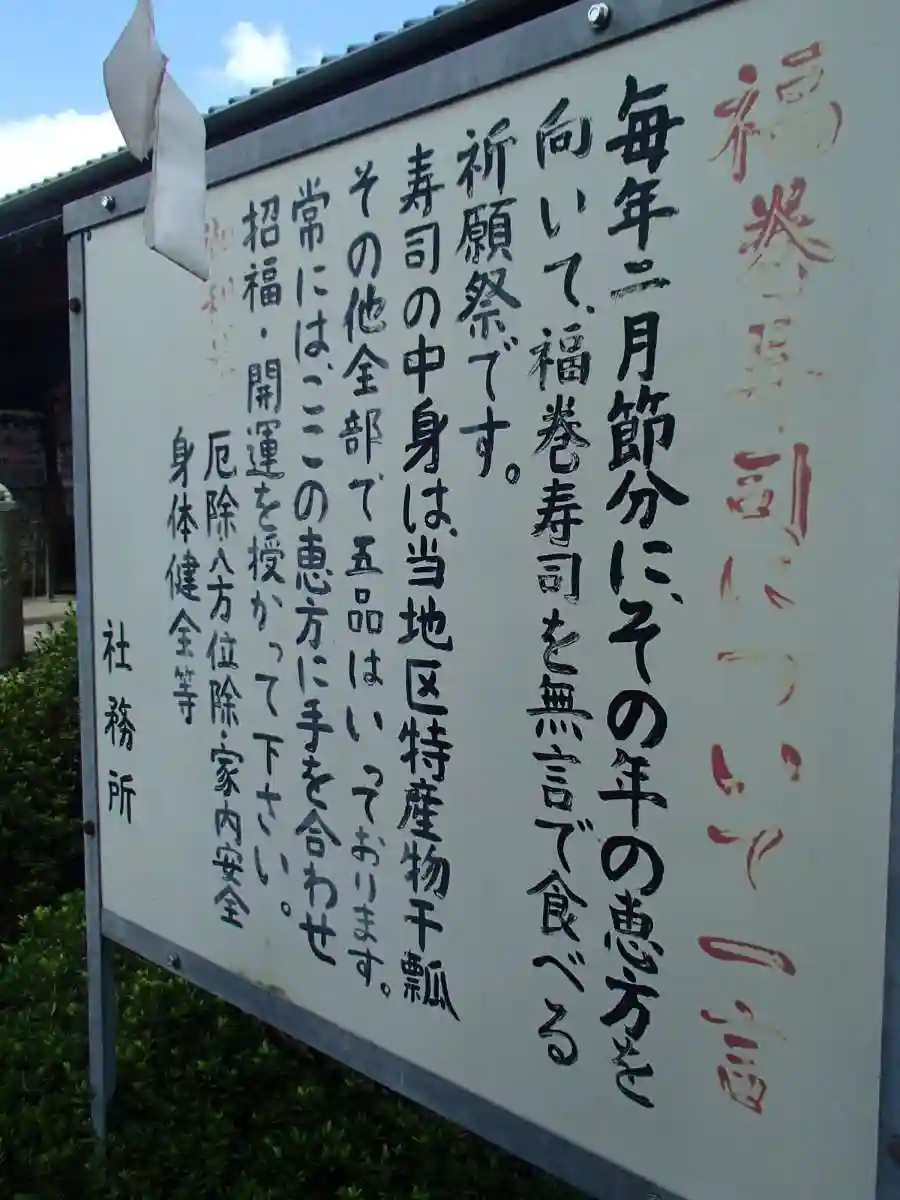 福巻寿司について一言
毎年二月節分に、その年の恵方を
向いて、福巻寿司を無言で食べる
祈願祭です。
寿司の中身は、当地区特産物干瓢
その他全部で五品はいっております。
常には、ここの恵方に手を合わせ
招福・開運を授かって下さい。
御利益
厄除八方位除・家内安全
身体健全等
社務所